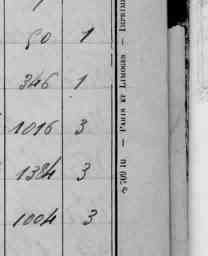 50 1
346 1
1016 3
1384 3
1004 3
PARIS ET LIMOGES. — IMPRIM